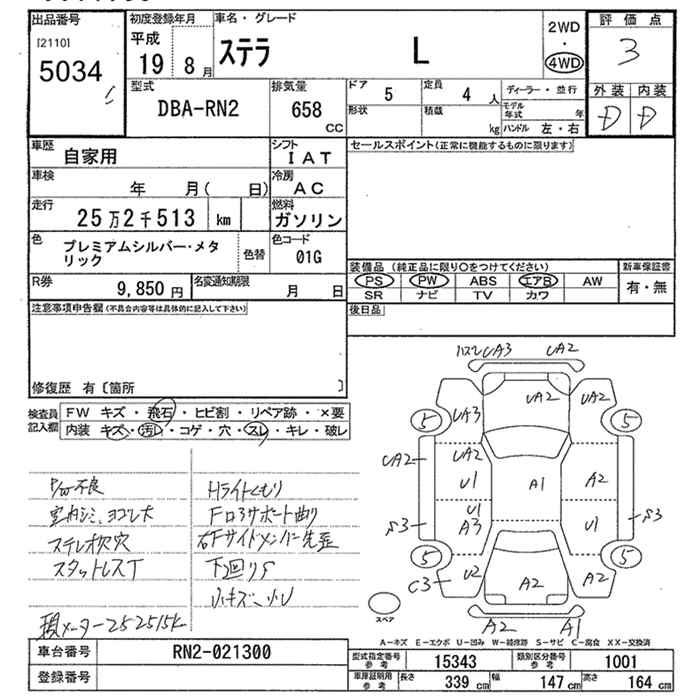 出品番号
[2110]
5034
初度登録年月
平成
19 8月
車名・グレード
ステラ L
2WD
・
4WD
評価点
3
外装 内装
D D
型式
DBA-RN2
排気量
658
CC
ドア
5
定員
4 人
形状
積載
kg
ディーラー・並行
モデル年式 年
ハンドル 左・右
車歴
自家用
シフト
IAT
車検
年 月( 日)
冷房
AC
走行
25万2千513 km
燃料
ガソリン
色
プレミアムシルバー・メタリック
色替
色コード
01G
R券
9,850 円
名変通知期限
月 日
セールスポイント(正常に機能するものに限ります)
装備品 (純正品に限り○をつけてください)
PS PW ABS エアB AW
SR ナビ TV カワ
新車保証書
有・無
後日品
注意事項申告欄(不具合内容等は具体的に記入して下さい)
修復歴 有〔箇所 〕
検査員記入欄
FW キズ・飛石・ヒビ割・リペア跡・×要
内装 キズ・汚れ・コゲ・穴・スレ・キレ・破レ
P/W不良
室内シミ、ヨゴレ大
ステレオ欠穴
スタットレスT
積メーター252515K
Hライトくもり
下廻りS
小キズ、小U
UA3 UA2
5 UA3 UA2 UA2 5
UA2 UA2
U1 A1 A2
U1
A3 U1
S3 S3
5 5
C3 U2 A2 A2
A2 A1
スペア
A-キズ E-エクボ U-凹み W-補修跡 S-サビ C-腐食 XX-交換済
車台番号
RN2-021300
登録番号
型式指定番号
参考
15343
類別区分番号
参考
1001
車庫証明用
参考
長さ 339 cm
幅 147 cm
高さ 164 cm